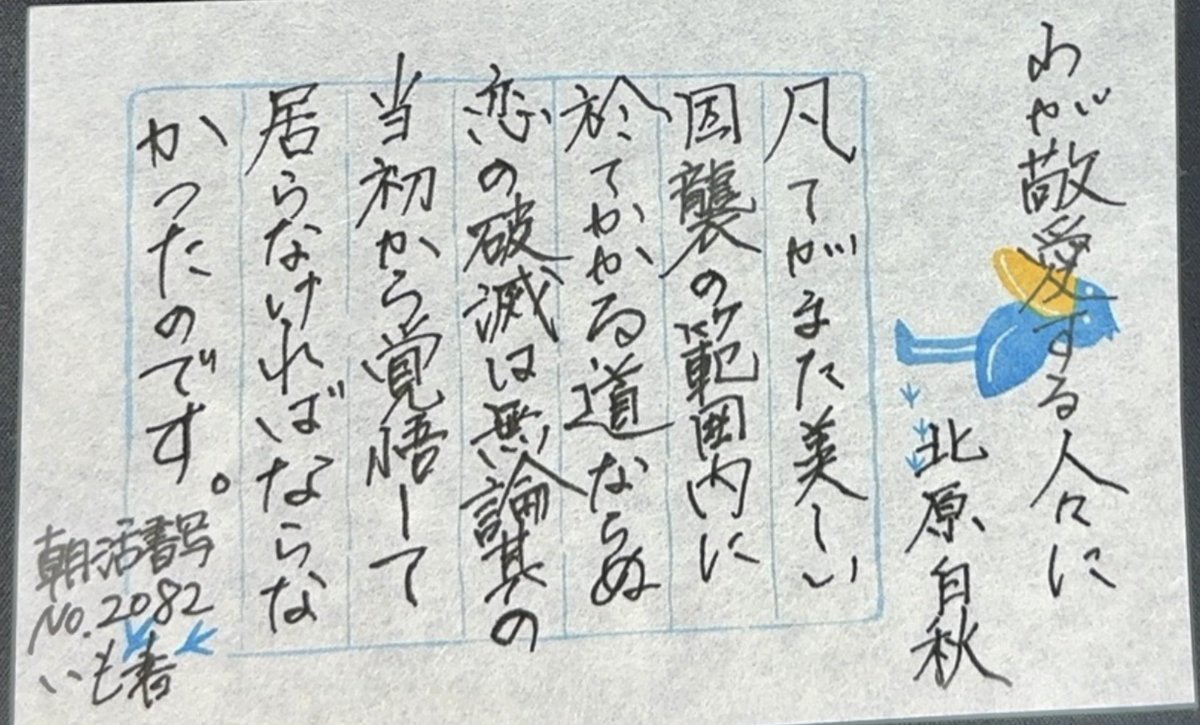 わが敬愛する人々に
北原白秋
凡てがまた美しい
因襲の範囲内に
於てかかる道ならぬ
恋の破滅は無論其の
当初から覚悟して
居らなければならな
かったのです。
朝活書写
No.2082
いも書